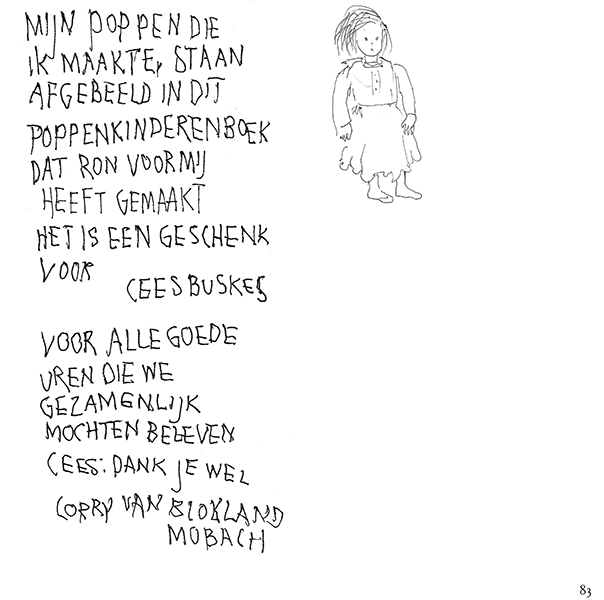 MIJN POPPEN DIE
IK MAAKTE, STAAN
AFGEBEELD IN DIT
POPPENKINDERENBOEK
DAT RON VOOR MIJ
HEEFT GEMAAKT
HET IS EEN GESCHENK
VOOR
CEES BUSKES
VOOR ALLE GOEDE
UREN DIE WE
GEZAMENLIJK
MOCHTEN BELEVEN
CEES: DANK JE WEL
CORRY VAN BLOKLAND
MOBACH
83